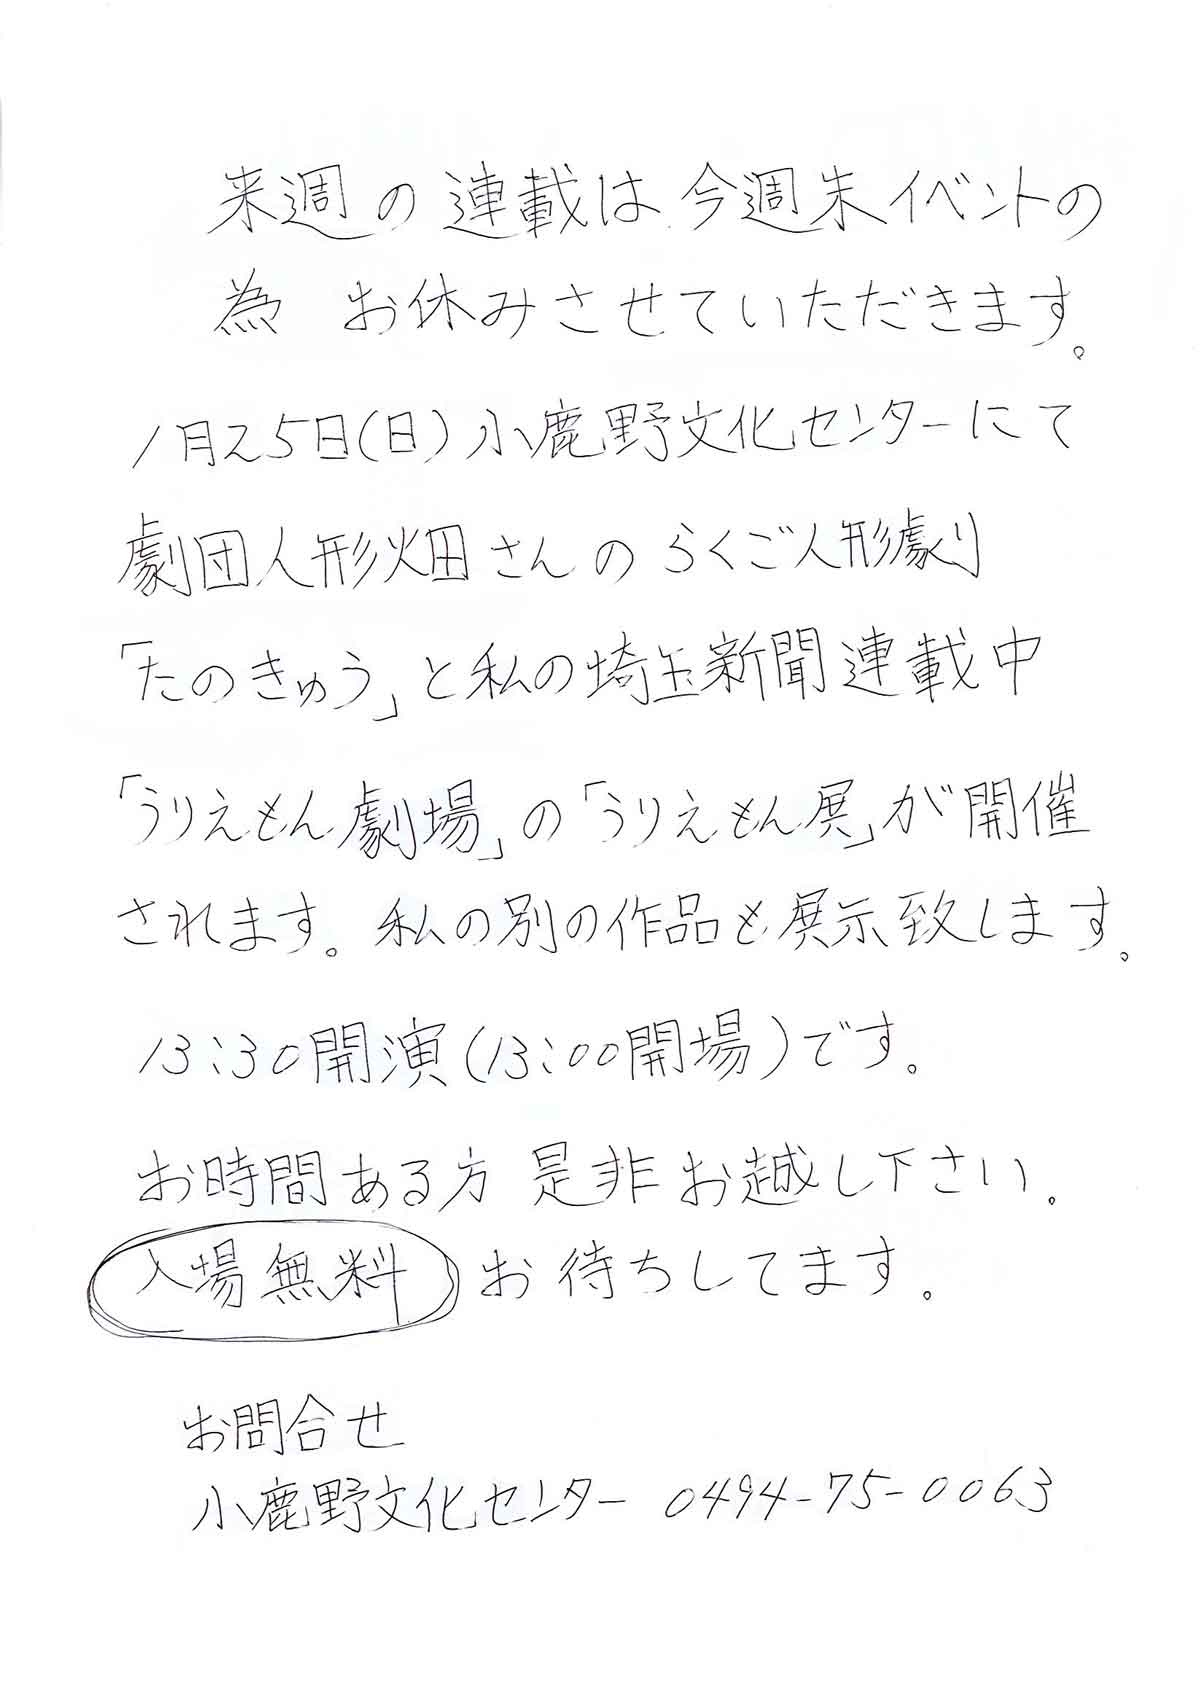 来週の連載は今週末イベントの
為 お休みさせていただきます。
1月25日(日)小鹿野文化センターにて
劇団人形畑さんのらくご人形劇
「たのきゅう」と私の埼玉新聞連載中
「うりえもん劇場」の「うりえもん展」が開催
されます。私の別の作品も展示致します。
13:30開演(13:00開場)です。
お時間ある方 是非お越し下さい。
入場無料 お待ちしてます。
お問合せ
小鹿野文化センター 0494-75-0063